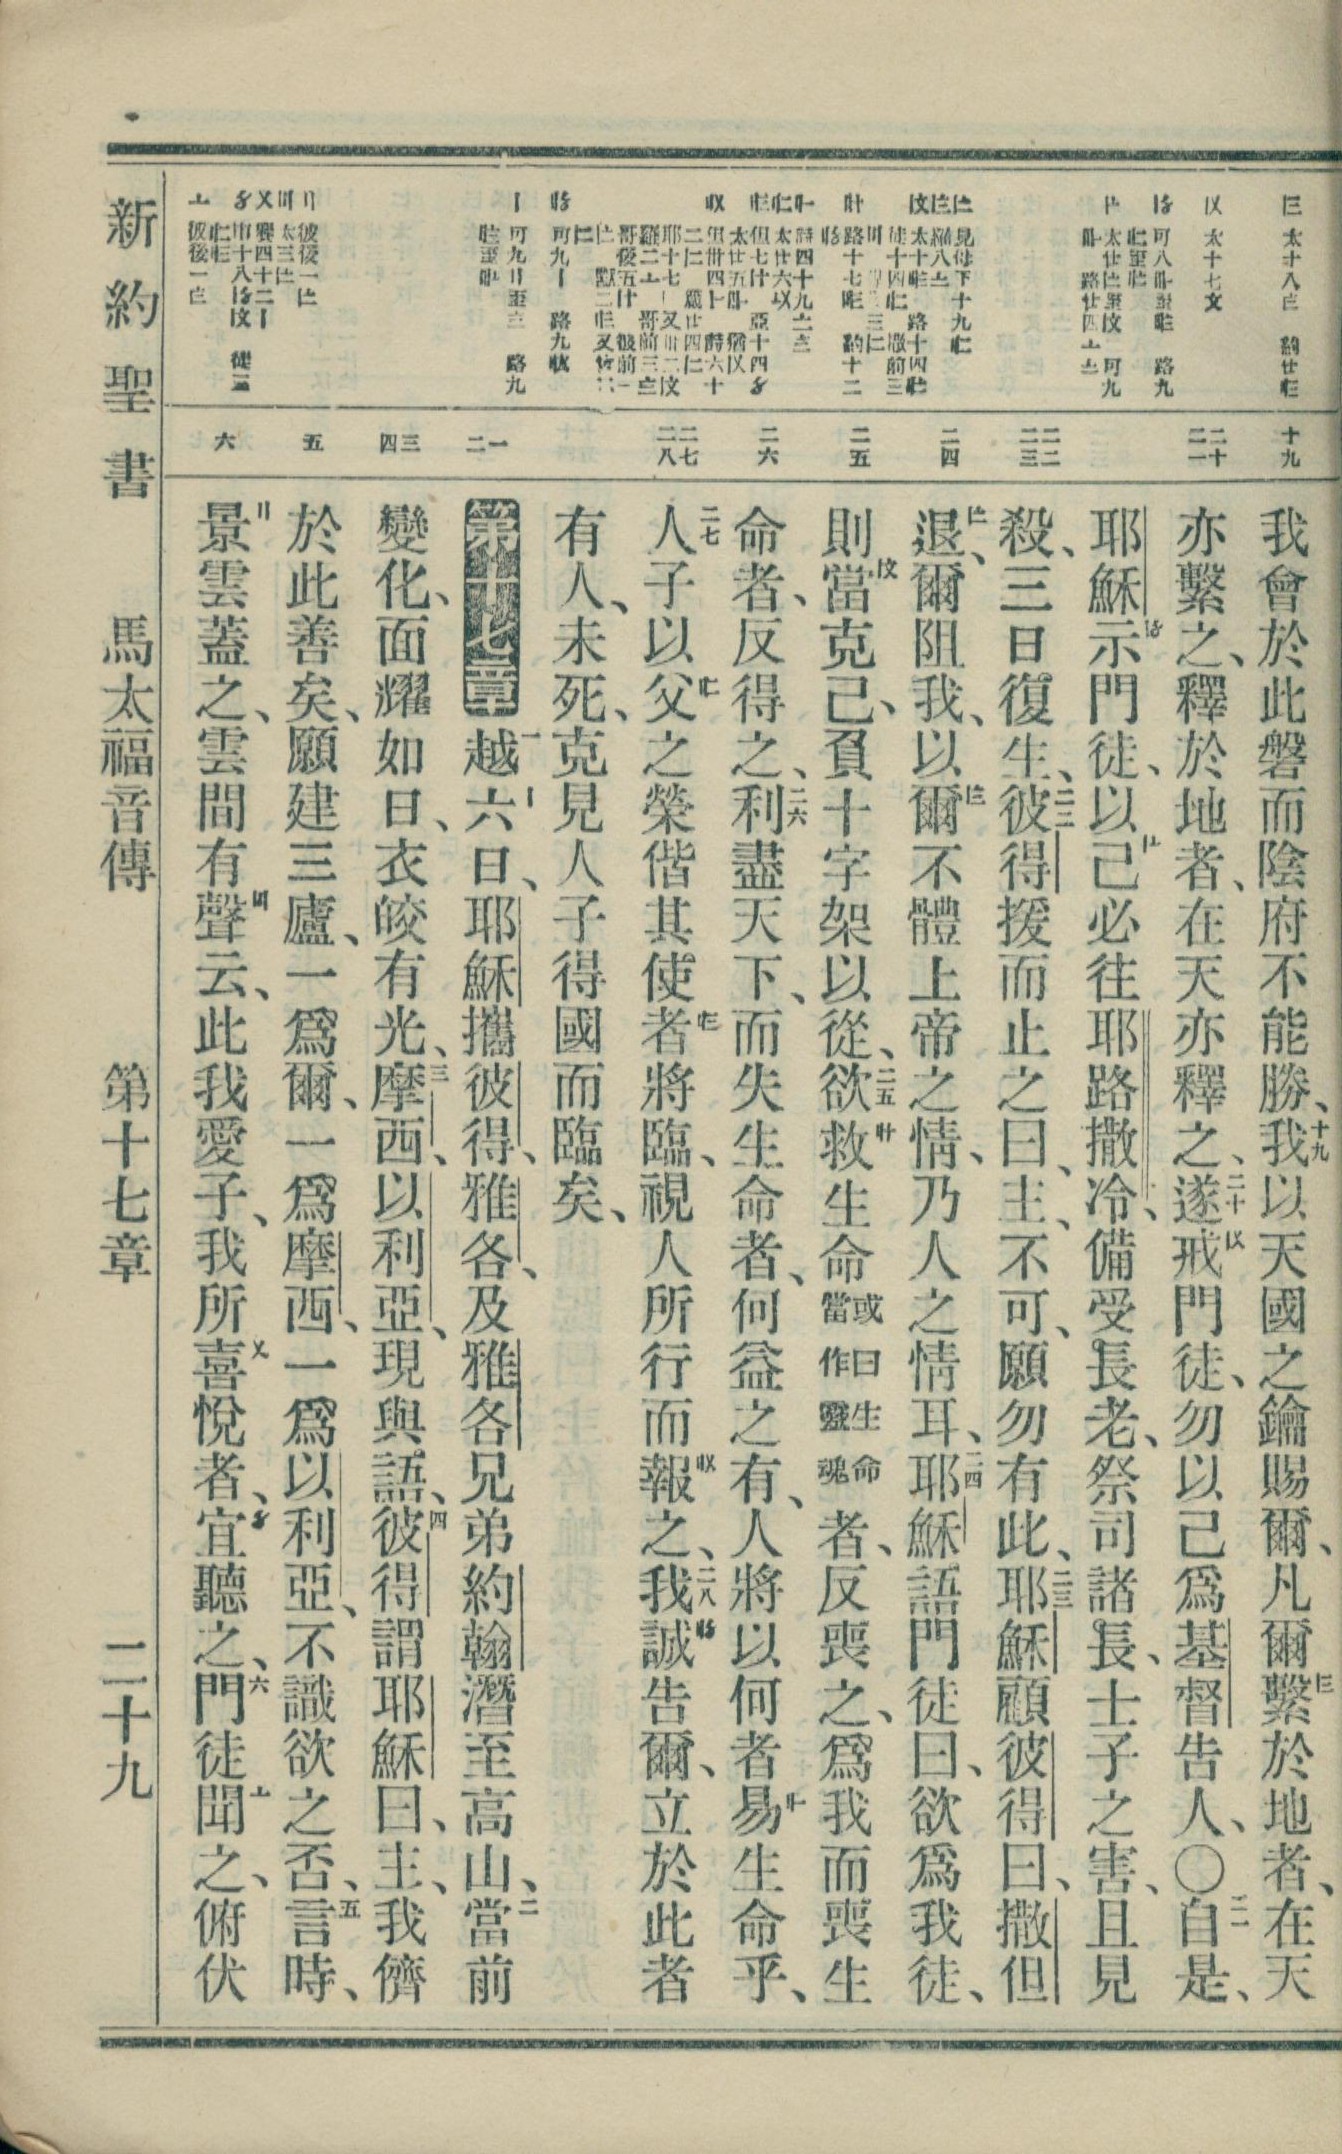 十九
二十
二一
二二
二三
二四
二五
二六
二七
二八
一
二
三
四
五
六
我會於此磐而陰府不能勝、十九我以天國之鑰賜爾、凡爾繫於地者、在天
亦繫之、釋於地者、在天亦釋之、二十遂戒門徒、勿以己爲基督告人、〇二一自是、
耶穌示門徒、以己必往耶路撒冷、備受長老、祭司諸長、士子之害、且見
殺、三日復生、二二彼得援而止之曰、主、不可、願勿有此、二三耶穌顧彼得曰、撒但
退、爾阻我、以爾不體上帝之情、乃人之情耳、二四耶穌語門徒曰、欲爲我徒、
則當克己、負十字架以從、二五欲救生命或曰生命當作靈魂者、反喪之、爲我而喪生
命者、反得之、二六利盡天下、而失生命者、何益之有、人將以何者易生命乎、
二七人子以父之榮偕其使者將臨、視人所行而報之、二八我誠告爾、立於此者
有人、未死、克見人子得國而臨矣、
第十七章 一越六日、耶穌攜彼得、雅各、及雅各兄弟約翰潛至高山、二當前
變化、面耀如日、衣皎有光、三摩西、以利亞、現與語、四彼得謂耶穌曰、主、我儕
於此善矣、願建三廬、一爲爾、一爲摩西、一爲以利亞、不識欲之否、五言時、
景雲蓋之、雲間有聲云、此我愛子、我所喜悅者、宜聽之、六門徒聞之、俯伏
新約聖書 馬太福音傳 第十七章 二十九